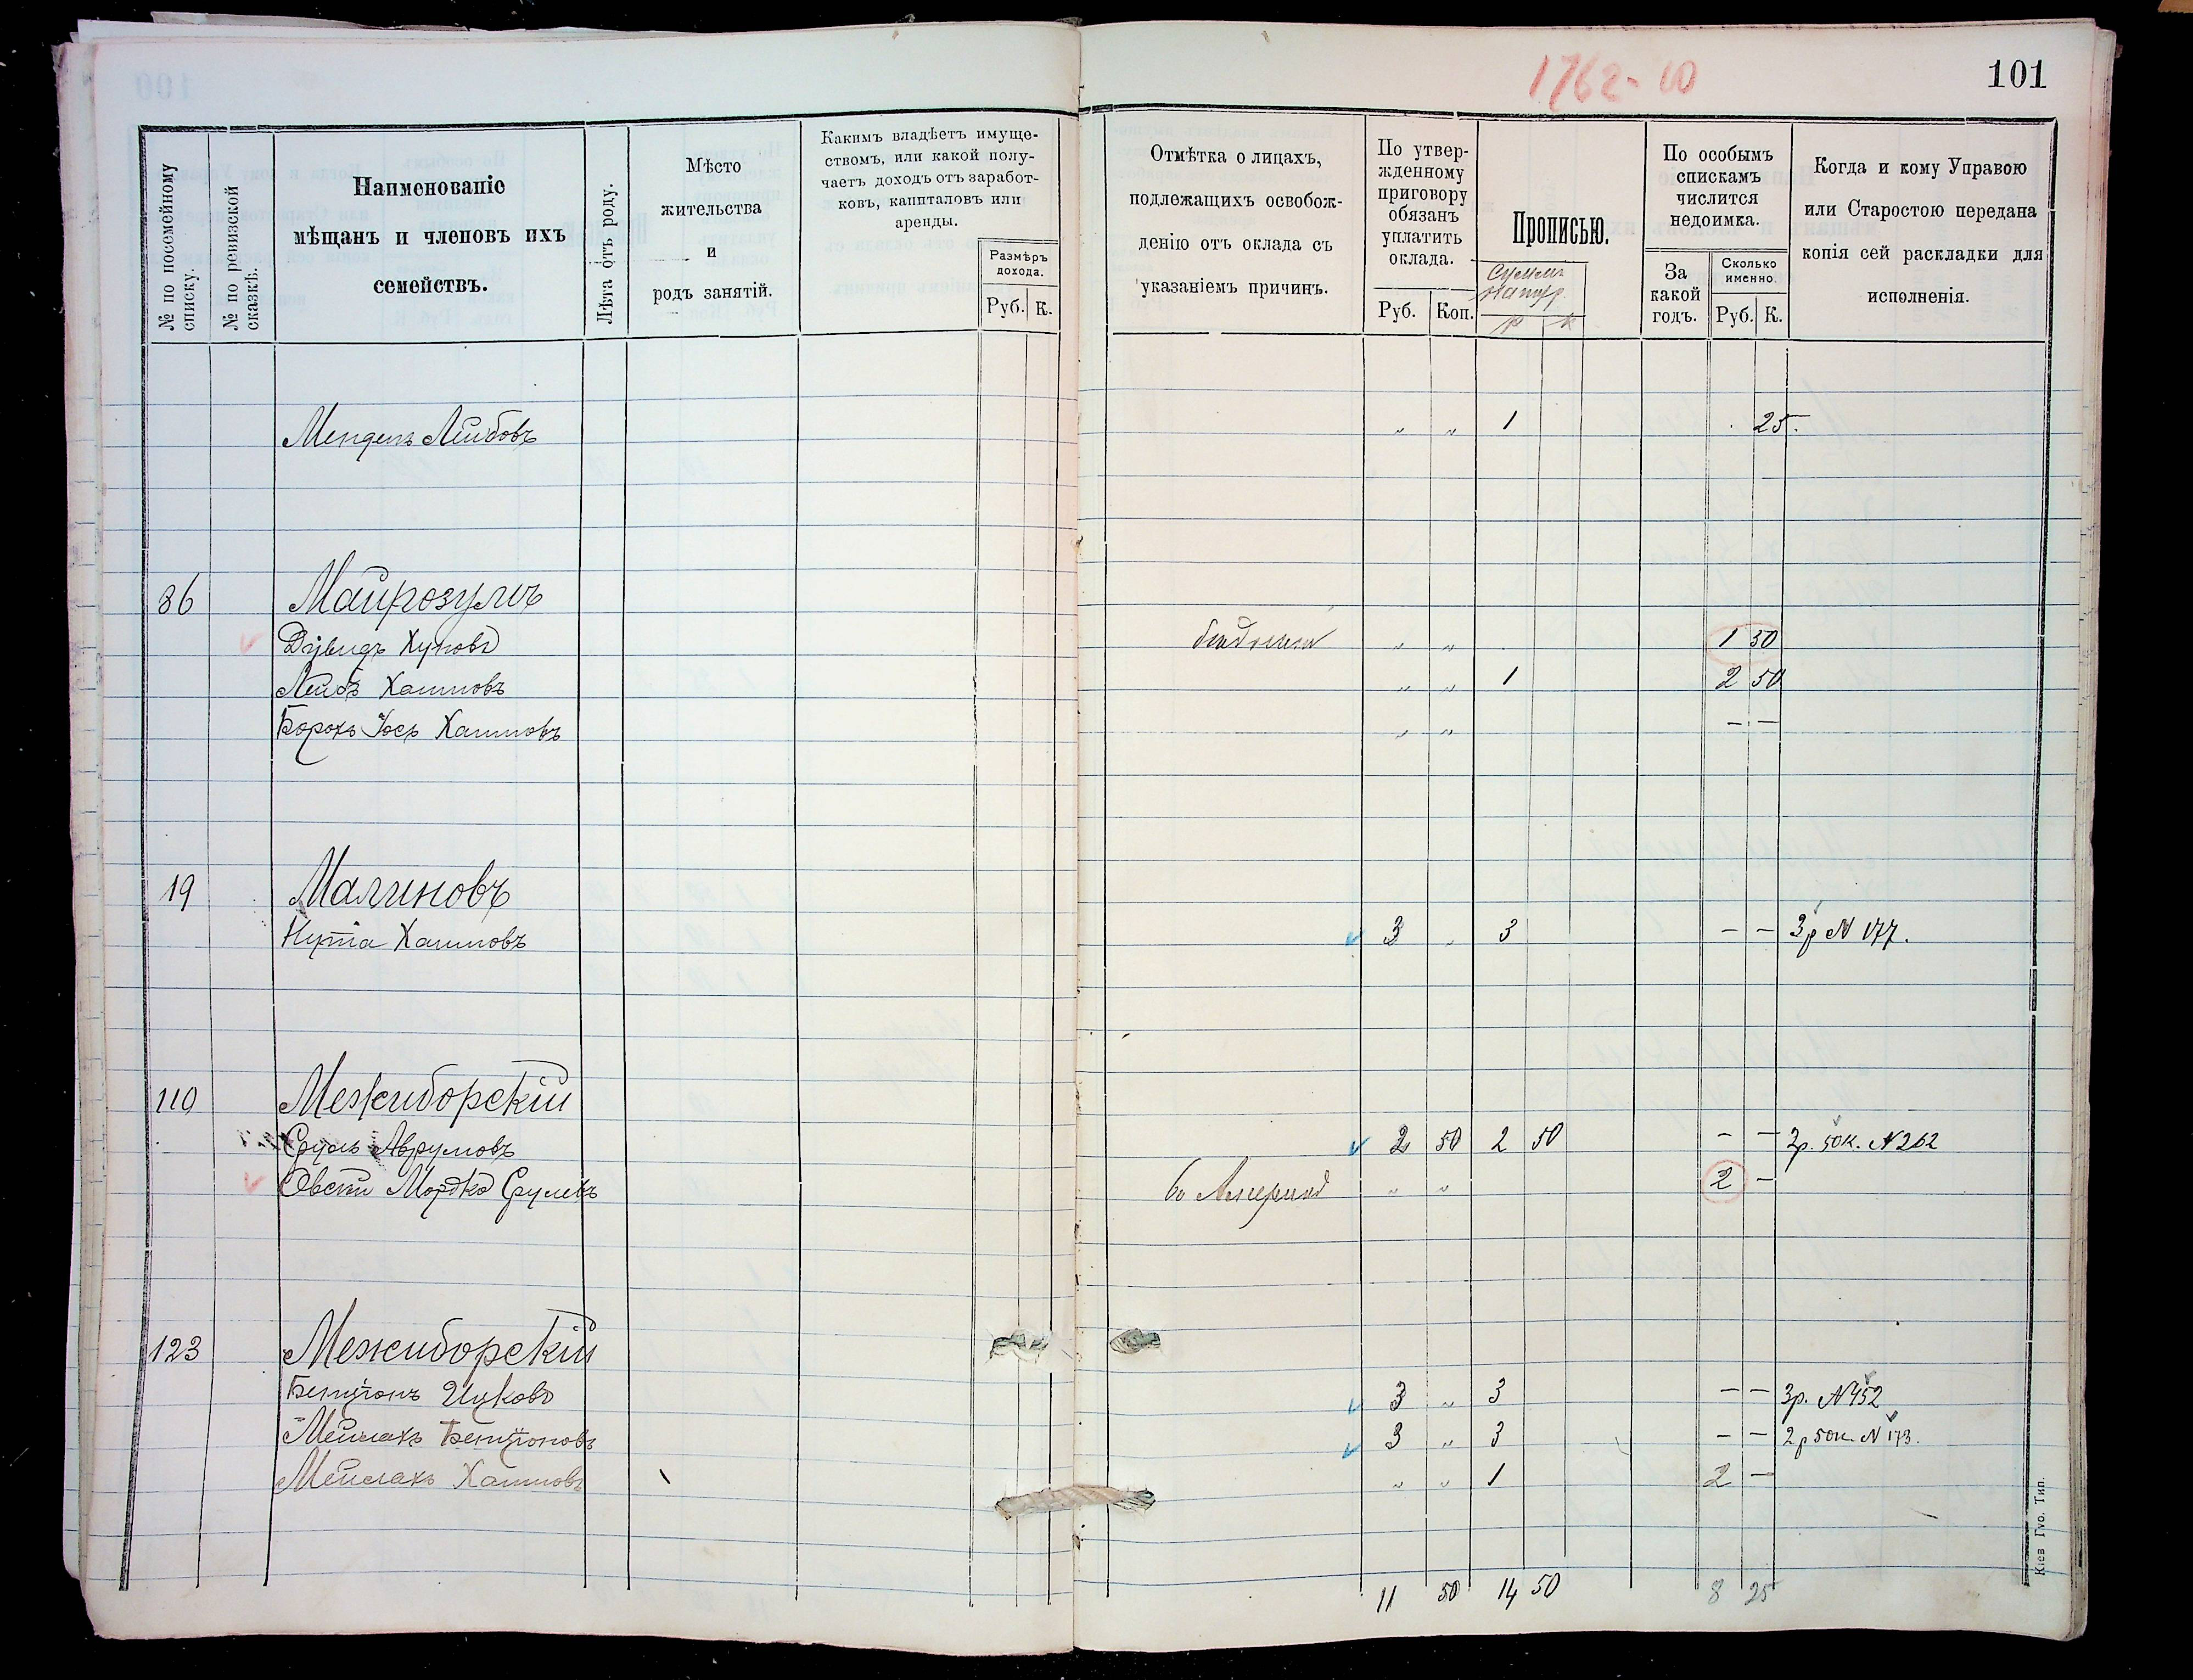 1762-10
101
№ по посемейному списку.
№ по ревизской сказкѣ.
Наименованіе
мѣщанъ и членовъ ихъ
семействъ.
Лѣта отъ роду.
Мѣсто
жительства
и
родъ занятій.
Какимъ владѣетъ имуще-
ствомъ, или какой полу-
чаетъ доходъ отъ заработ-
ковъ, капиталовъ или
аренды.
Размѣръ
дохода.
Руб. К.
Отмѣтка о лицахъ,
подлежащихъ освобож-
денію отъ оклада съ
указаніемъ причинъ.
По утвер-
жденному
приговору
обязанъ
уплатить
оклада.
Руб. Коп.
Прописью.
р к
По особымъ
спискамъ
числится
недоимка.
За
какой
годъ.
Сколько
именно.
Руб. К.
Когда и кому Управою
или Старостою передана
копія сей раскладки для
исполненія.
Мендель Лейбовъ " " 1 25.
86 Майрозумъ
Дувидъ Хуновъ " " 1 50
Лейбъ Хаимовъ " " 1 2 50
Борохъ Іось Хаимовъ " " — —
19 Малиновъ
Нута Хаимовъ 3 " 3 — — 3р N 177.
110 Межиборскій
Сруль Аврумовъ 2 50 2 50 — — 2р. 50к. N 262
Овсій Мордко Срулевъ во Америкѣ " " 2 —
123 Межиборскій
Бенціонъ Ицковъ 3 " 3 — — 3р. N 452
Мейлахъ Бенціоновъ 3 " 3 — — 2р 50к. N 173.
Мейлахъ Хаимовъ " " 1 2 —
11 50 14 50 8 25
Кіев Гуо. Тип.